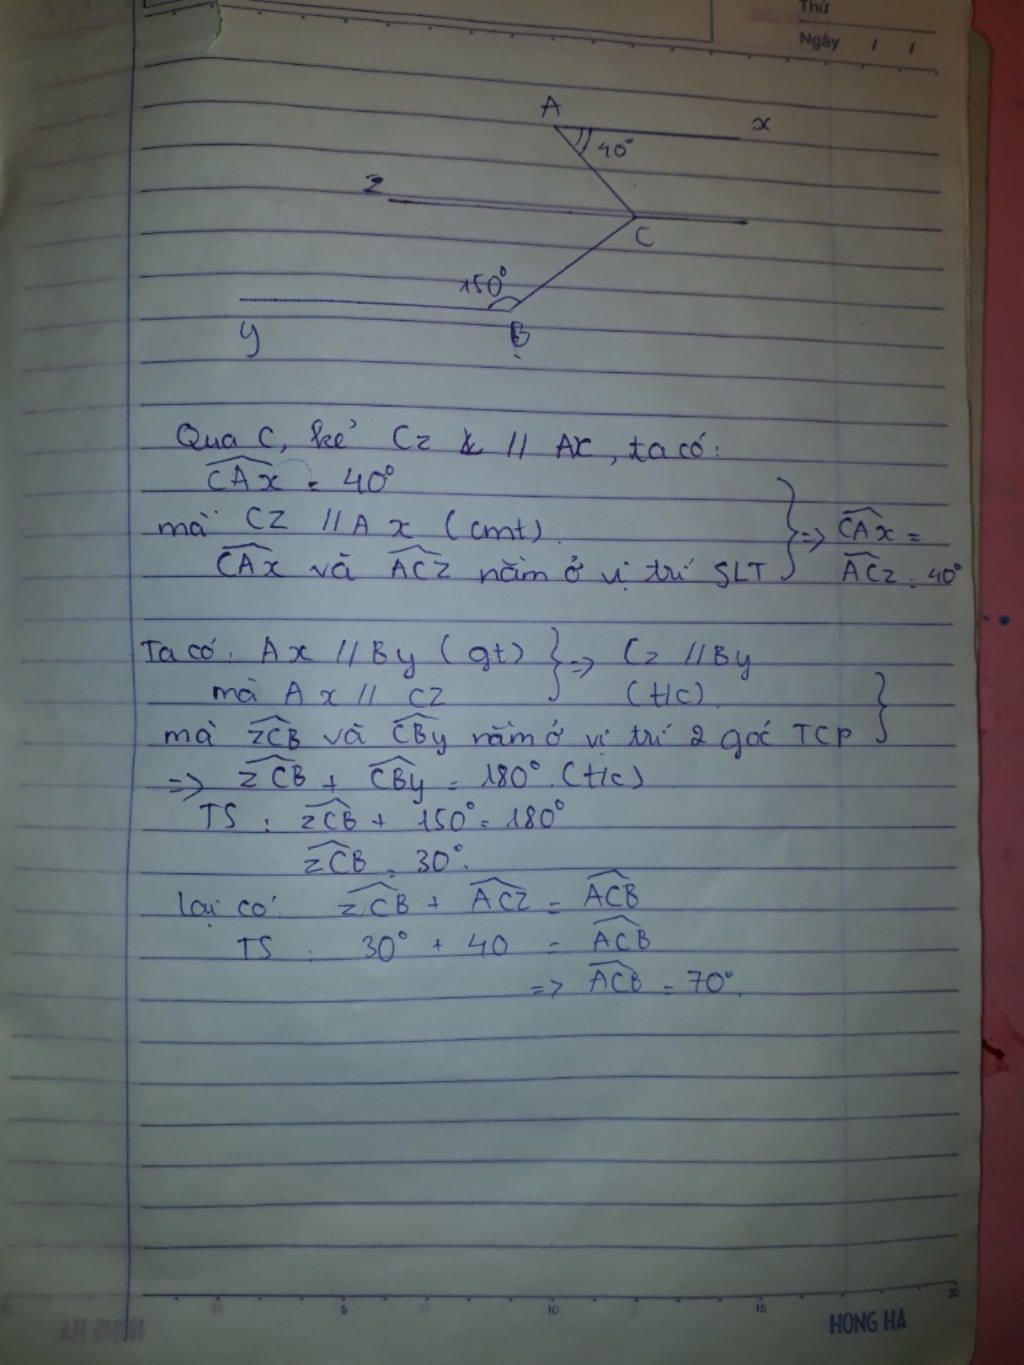 Thứ
Ngày / /
A
x
40°
z
C
150°
y
B
Qua C, kẻ Cz // Ax, ta có:
CAx = 40°
mà CZ // Ax (cmt).
CAx và ACZ nằm ở vị trí SLT
=> CAx =
ACz = 40°
Ta có: Ax // By (gt) => Cz // By
mà Ax // CZ (t/c)
mà zCB và CBy nằm ở vị trí 2 góc TCP
=> zCB + CBy = 180° (t/c)
TS: zCB + 150° = 180°
zCB = 30°.
lại có: zCB + ACZ = ACB
TS: 30° + 40 = ACB
=> ACB = 70°.
5 10 15 20
HONG HA